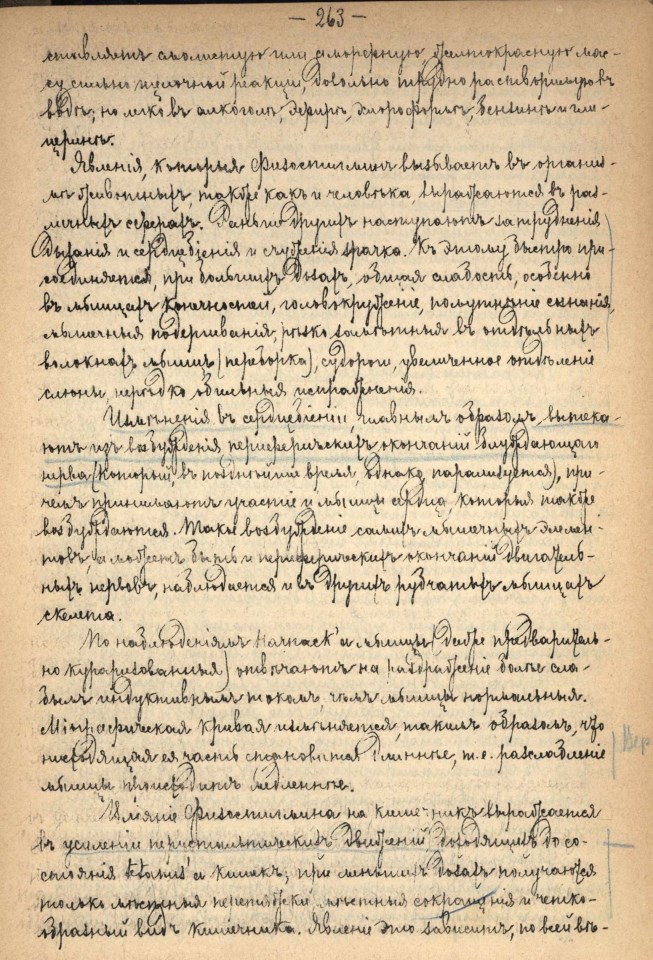 — 263 —
ставляетъ смолистую или аморфную, желтокрасную мас-
су сильно щелочной реакціи, довольно трудно растворимую въ
водѣ; но легко въ алкоголѣ, эфирѣ, хлороформѣ, бензинѣ и гли-
церинѣ.
Явленія, которыя Физостигминъ вызываетъ въ организ-
мѣ животныхъ, также какъ и человѣка, выражаются въ раз-
личныхъ сферахъ. Раньше другихъ наступаютъ затрудненія
дыханія и сердцебіенія и съуженія зрачка. Къ этому быстро при-
соединяется, при большихъ дозахъ, общая слабость, особенно
въ мышцахъ конечностей, головокруженіе, помутнѣніе сознанія,
мышечныя подергиванія, рѣзко замѣтныя въ отдѣльныхъ
волокнахъ мышцъ (переборка), судороги, увеличенное отдѣленіе
слюны, нерѣдко обильныя испражненія.
Измѣненія въ сердцебіеніи, главнымъ образомъ, вытека-
ютъ изъ возбужденія периферическихъ окончаній блуждающаго
нерва (который въ позднѣйшее время, однако, парализуется), при-
чемъ принимаютъ участіе и мышцы сердца, которыя также
возбуждаются. Такое возбужденіе самихъ мышечныхъ элемен-
товъ, а можетъ быть и периферическихъ окончаній двигатель-
ныхъ нервовъ, наблюдается и въ другихъ рубчатыхъ мышцахъ
скелета.
По наблюденіямъ Harnack'а мышцы (даже предваритель-
но кураризованныя) отвѣчаютъ на раздраженіе болѣе сла-
бымъ индуктивнымъ токомъ, чѣмъ мышцы нормальныя.
Міографическая кривая измѣняется, такимъ образомъ, что
нисходящая ея часть становится длиннѣе, т. е. разслабленіе
мышцы происходитъ медленнѣе.
Вліяніе Физостигмина на кишечникъ выражается
въ усиленіи перистальтическихъ движеній, доходящихъ до со-
стоянія tetanus'а кишекъ; при меньшихъ дозахъ получаются
только мѣстныя мѣстныя сокращенія и четко-
образный видъ кишечника. Явленіе это зависитъ, по всей вѣ-